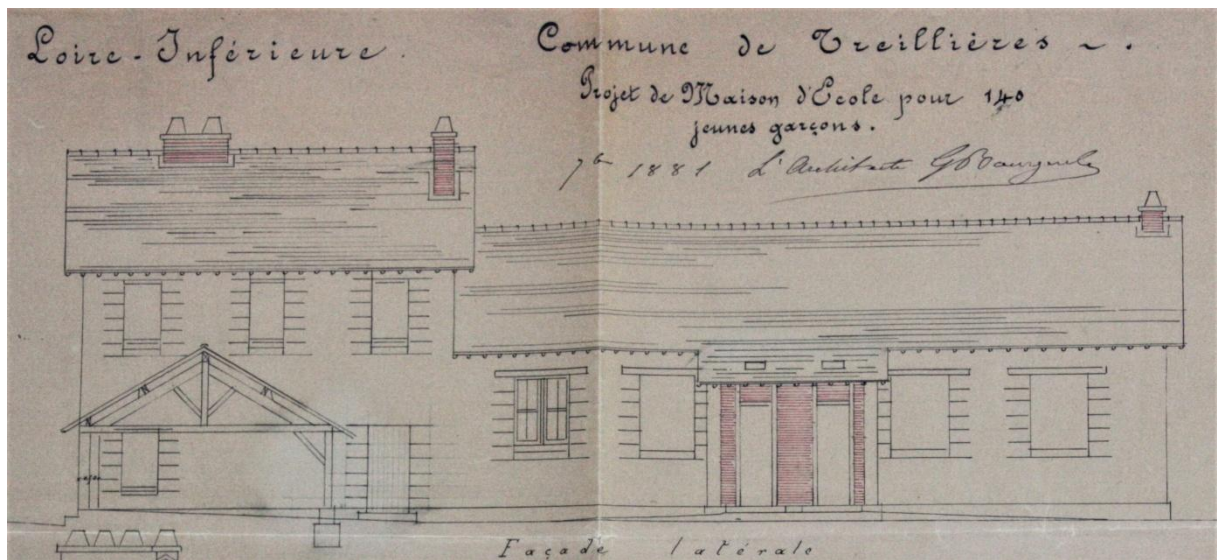 Loire-Inférieure.
Commune de Treillières ~ .
Projet de Maison d'École pour 140
jeunes garçons.
7bre 1881 L'Architecte
Façade latérale